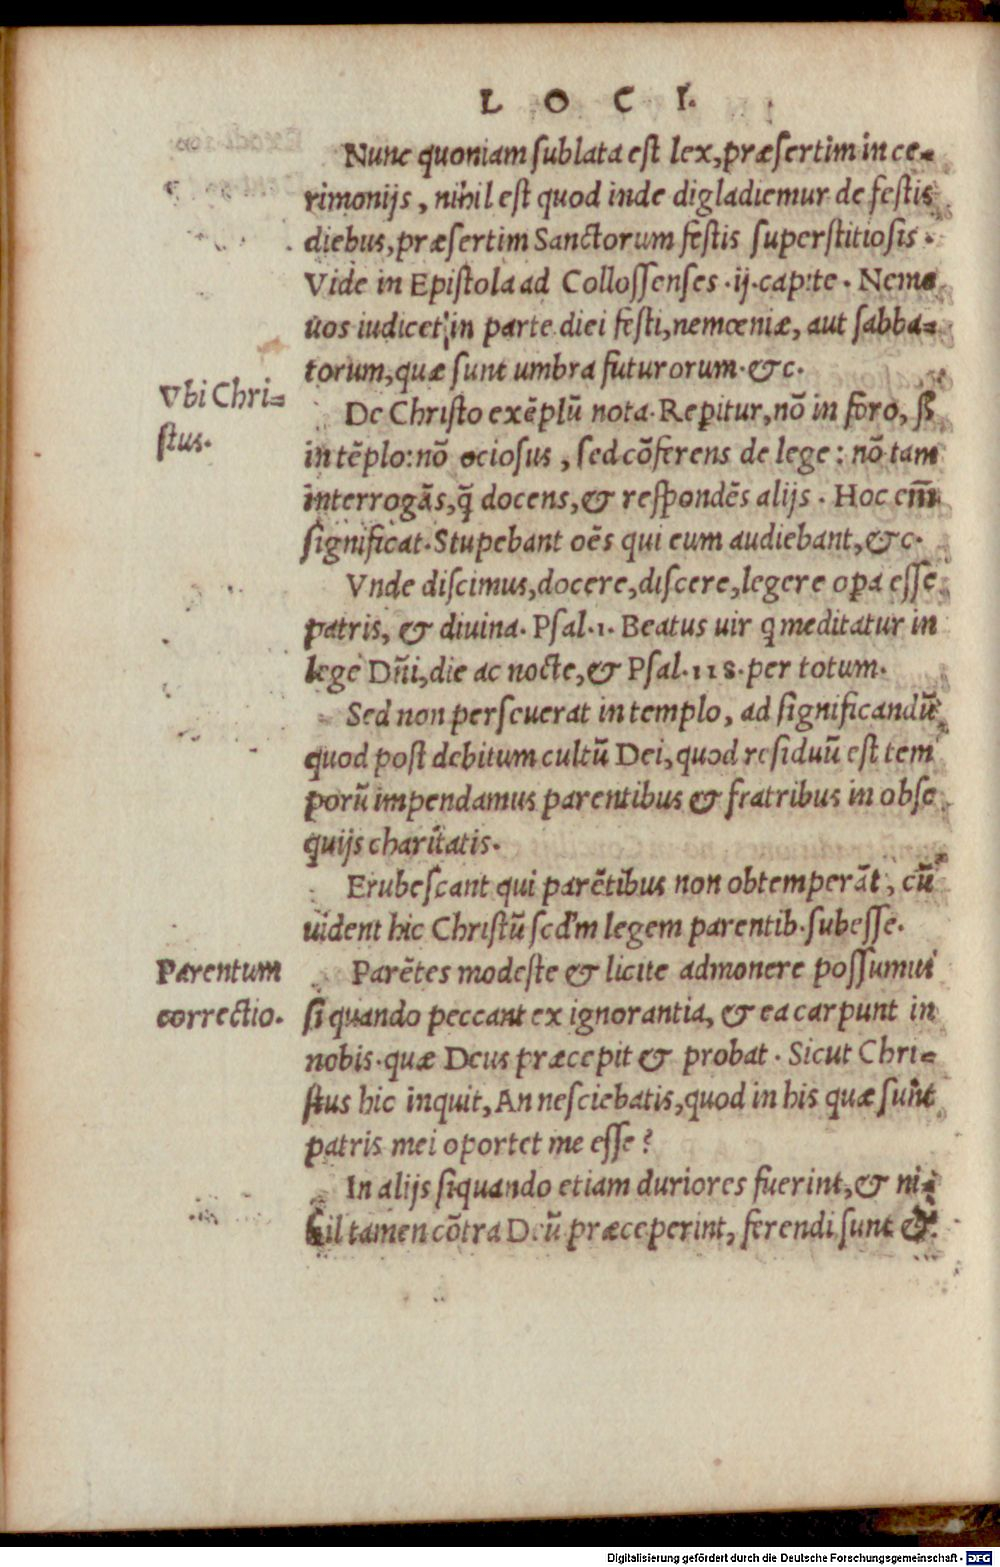 L O C I.
Nunc quoniam sublata est lex, præsertim in ce-
rimonijs, nihil est quod inde digladiemur de festis
diebus, præsertim Sanctorum festis superstitiosis.
Vide in Epistola ad Collossenses .ij. cap:te. Nemo
uos iudicet in parte diei festi, nemœniæ, aut sabba-
torum, quæ sunt umbra futurorum. &c.
Vbi Chri-
stus.
De Christo exẽplũ nota. Repitur, nõ in foro, sꝫ
in tẽplo: nõ ociosus, sed cõferens de lege: nõ tam
interrogãs, q̃ docens, & respondẽs alijs. Hoc em̃
significat. Stupebant oẽs qui eum audiebant, &c.
Vnde discimus, docere, discere, legere opa esse
patris, & diuina. Psal. 1. Beatus uir q meditatur in
lege Dñi, die ac nocte, & Psal. 118. per totum.
Sed non perseuerat in templo, ad significandũ
quod post debitum cultũ Dei, quod residuũ est tem
porũ impendamus parentibus & fratribus in obse
quijs charitatis.
Erubescant qui parẽtibus non obtemperãt, cũ
uident hic Christũ scd'm legem parentib. subesse.
Parentum
correctio.
Parẽtes modeste & licite admonere possumus
si quando peccant ex ignorantia, & ea carpunt in
nobis. quæ Deus præcepit & probat. Sicut Chri-
stus hic inquit, An nesciebatis, quod in his quæ sunt
patris mei oportet me esse?
In alijs siquando etiam duriores fuerint, & ni-
hil tamen cõtra Deũ præceperint, ferendi sunt &
Digitalisierung gefördert durch die Deutsche Forschungsgemeinschaft - DFG